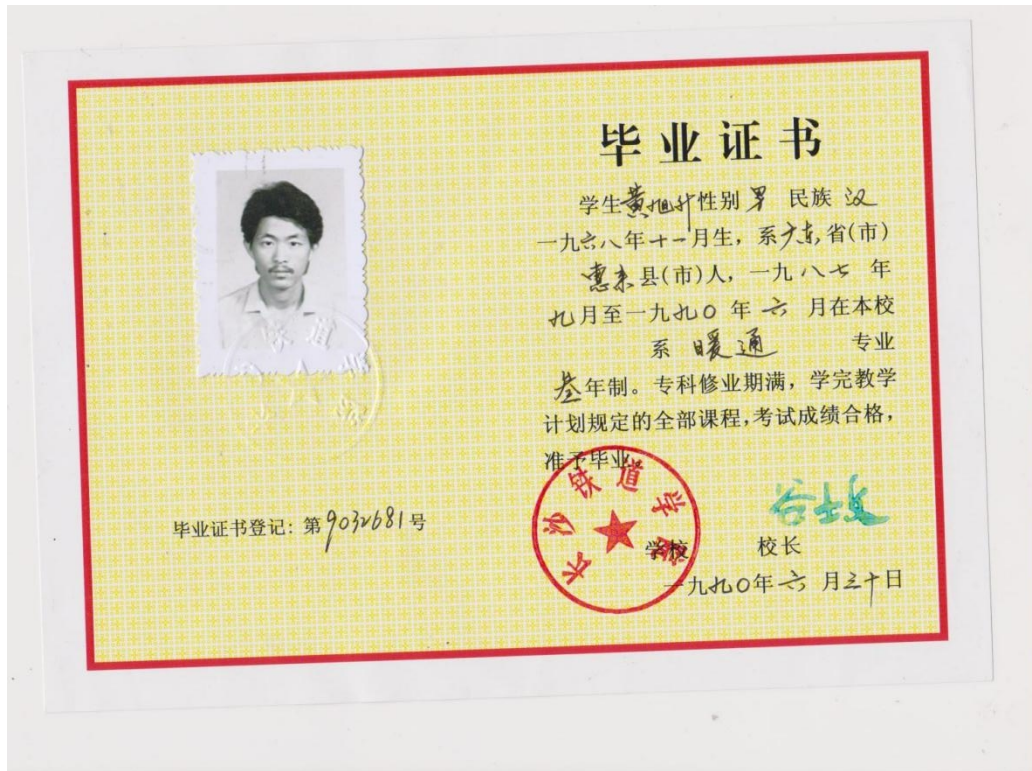 毕业证书
学生黄旭升性别男 民族 汉
一九六八年十一月生，系广东省(市)
惠来县(市)人，一九八七 年
九月至一九九〇年 六 月在本校
系 暖通 专业
叁年制。专科修业期满，学完教学
计划规定的全部课程，考试成绩合格，
准予毕业。
长沙铁道学院
学校 校长
一九九〇年 六 月三十日
毕业证书登记：第9032681号